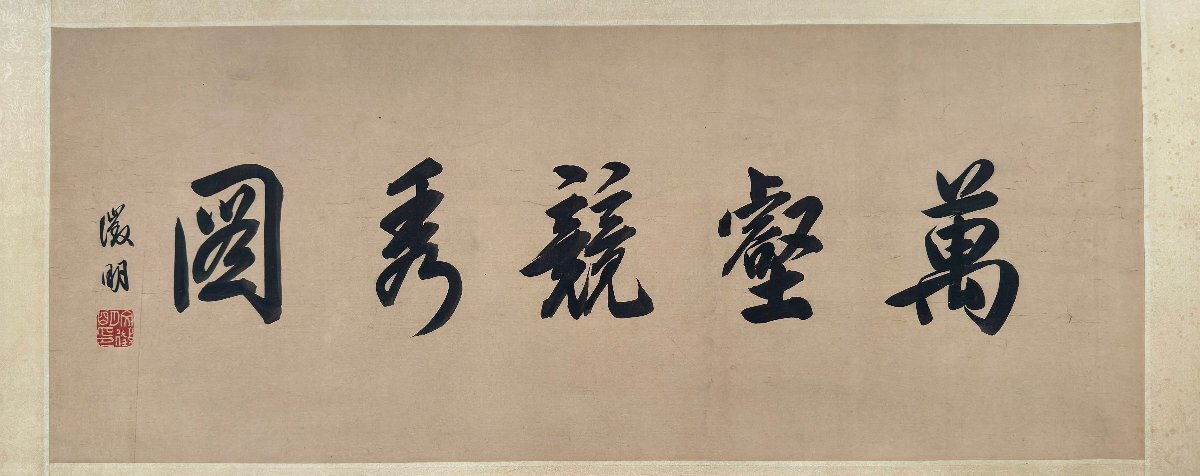 萬壑競秀圖
徵明